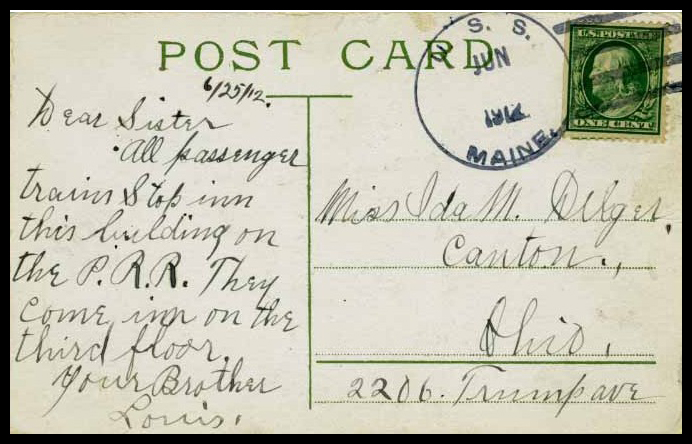 POST CARD
U. S. S.
JUN
1912
MAINE.
U.S. POSTAGE
ONE CENT
6/25/12.
Dear Sister
All passenger
trains Stop inn
this building on
the P.R.R. They
Come inn on the
third floor.
Your Brother
Louis.
Miss Ida M. Dilger,
Canton.,
Ohio,
2206. Trump ave